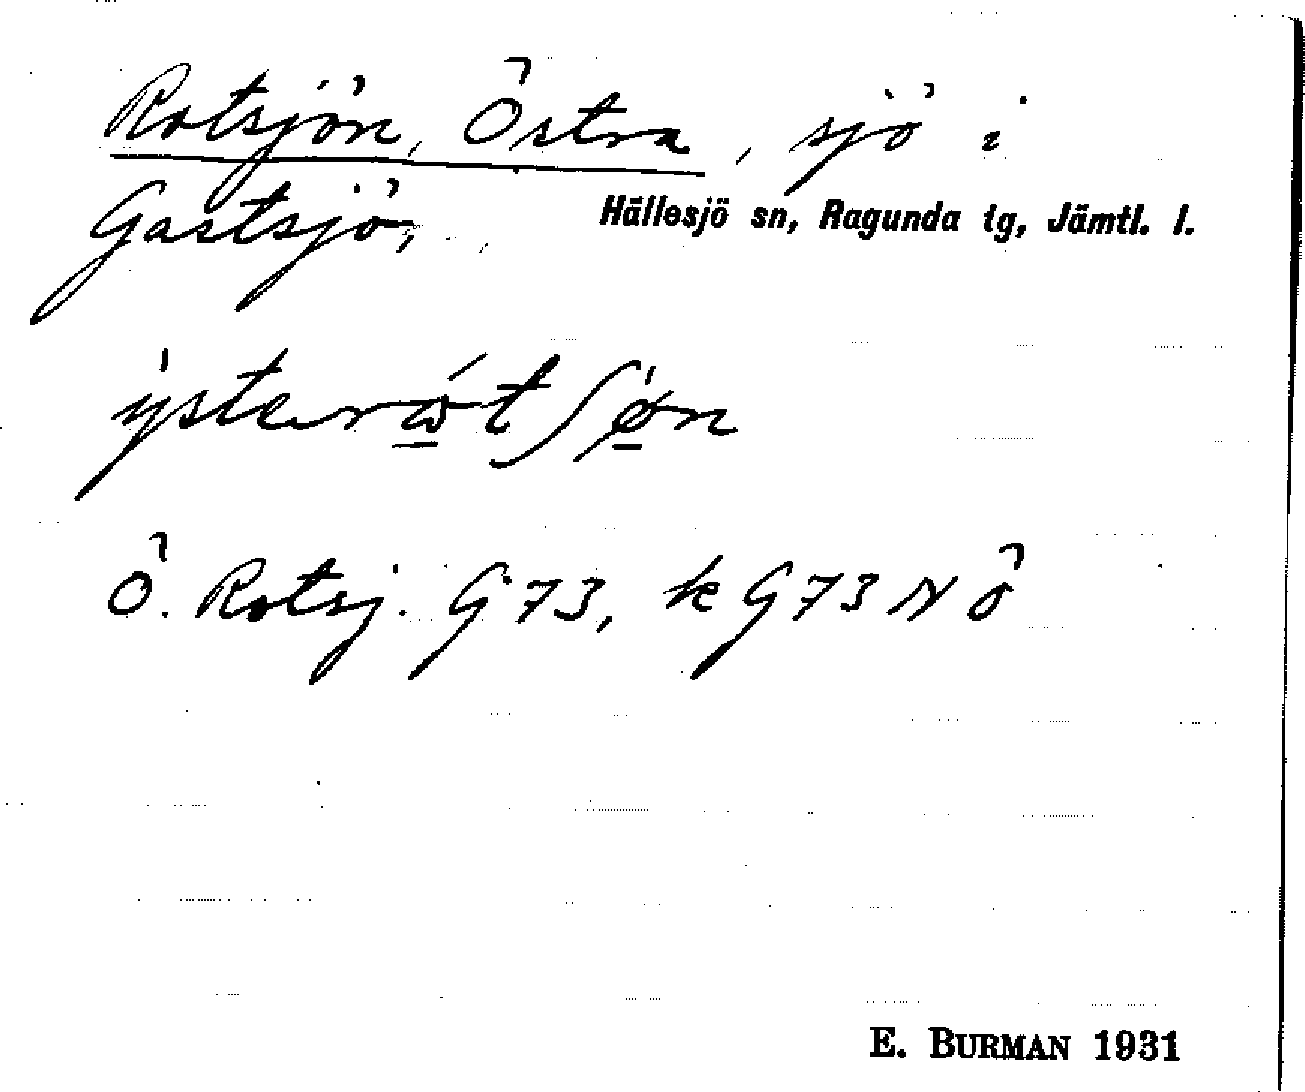 Rotsjön, Östra, sjö i
Gastsjö, Hällesjö sn, Ragunda tg, Jämtl. l.
Ö. Rotsj. G 73, k G 73 N Ö
E. BURMAN 1931